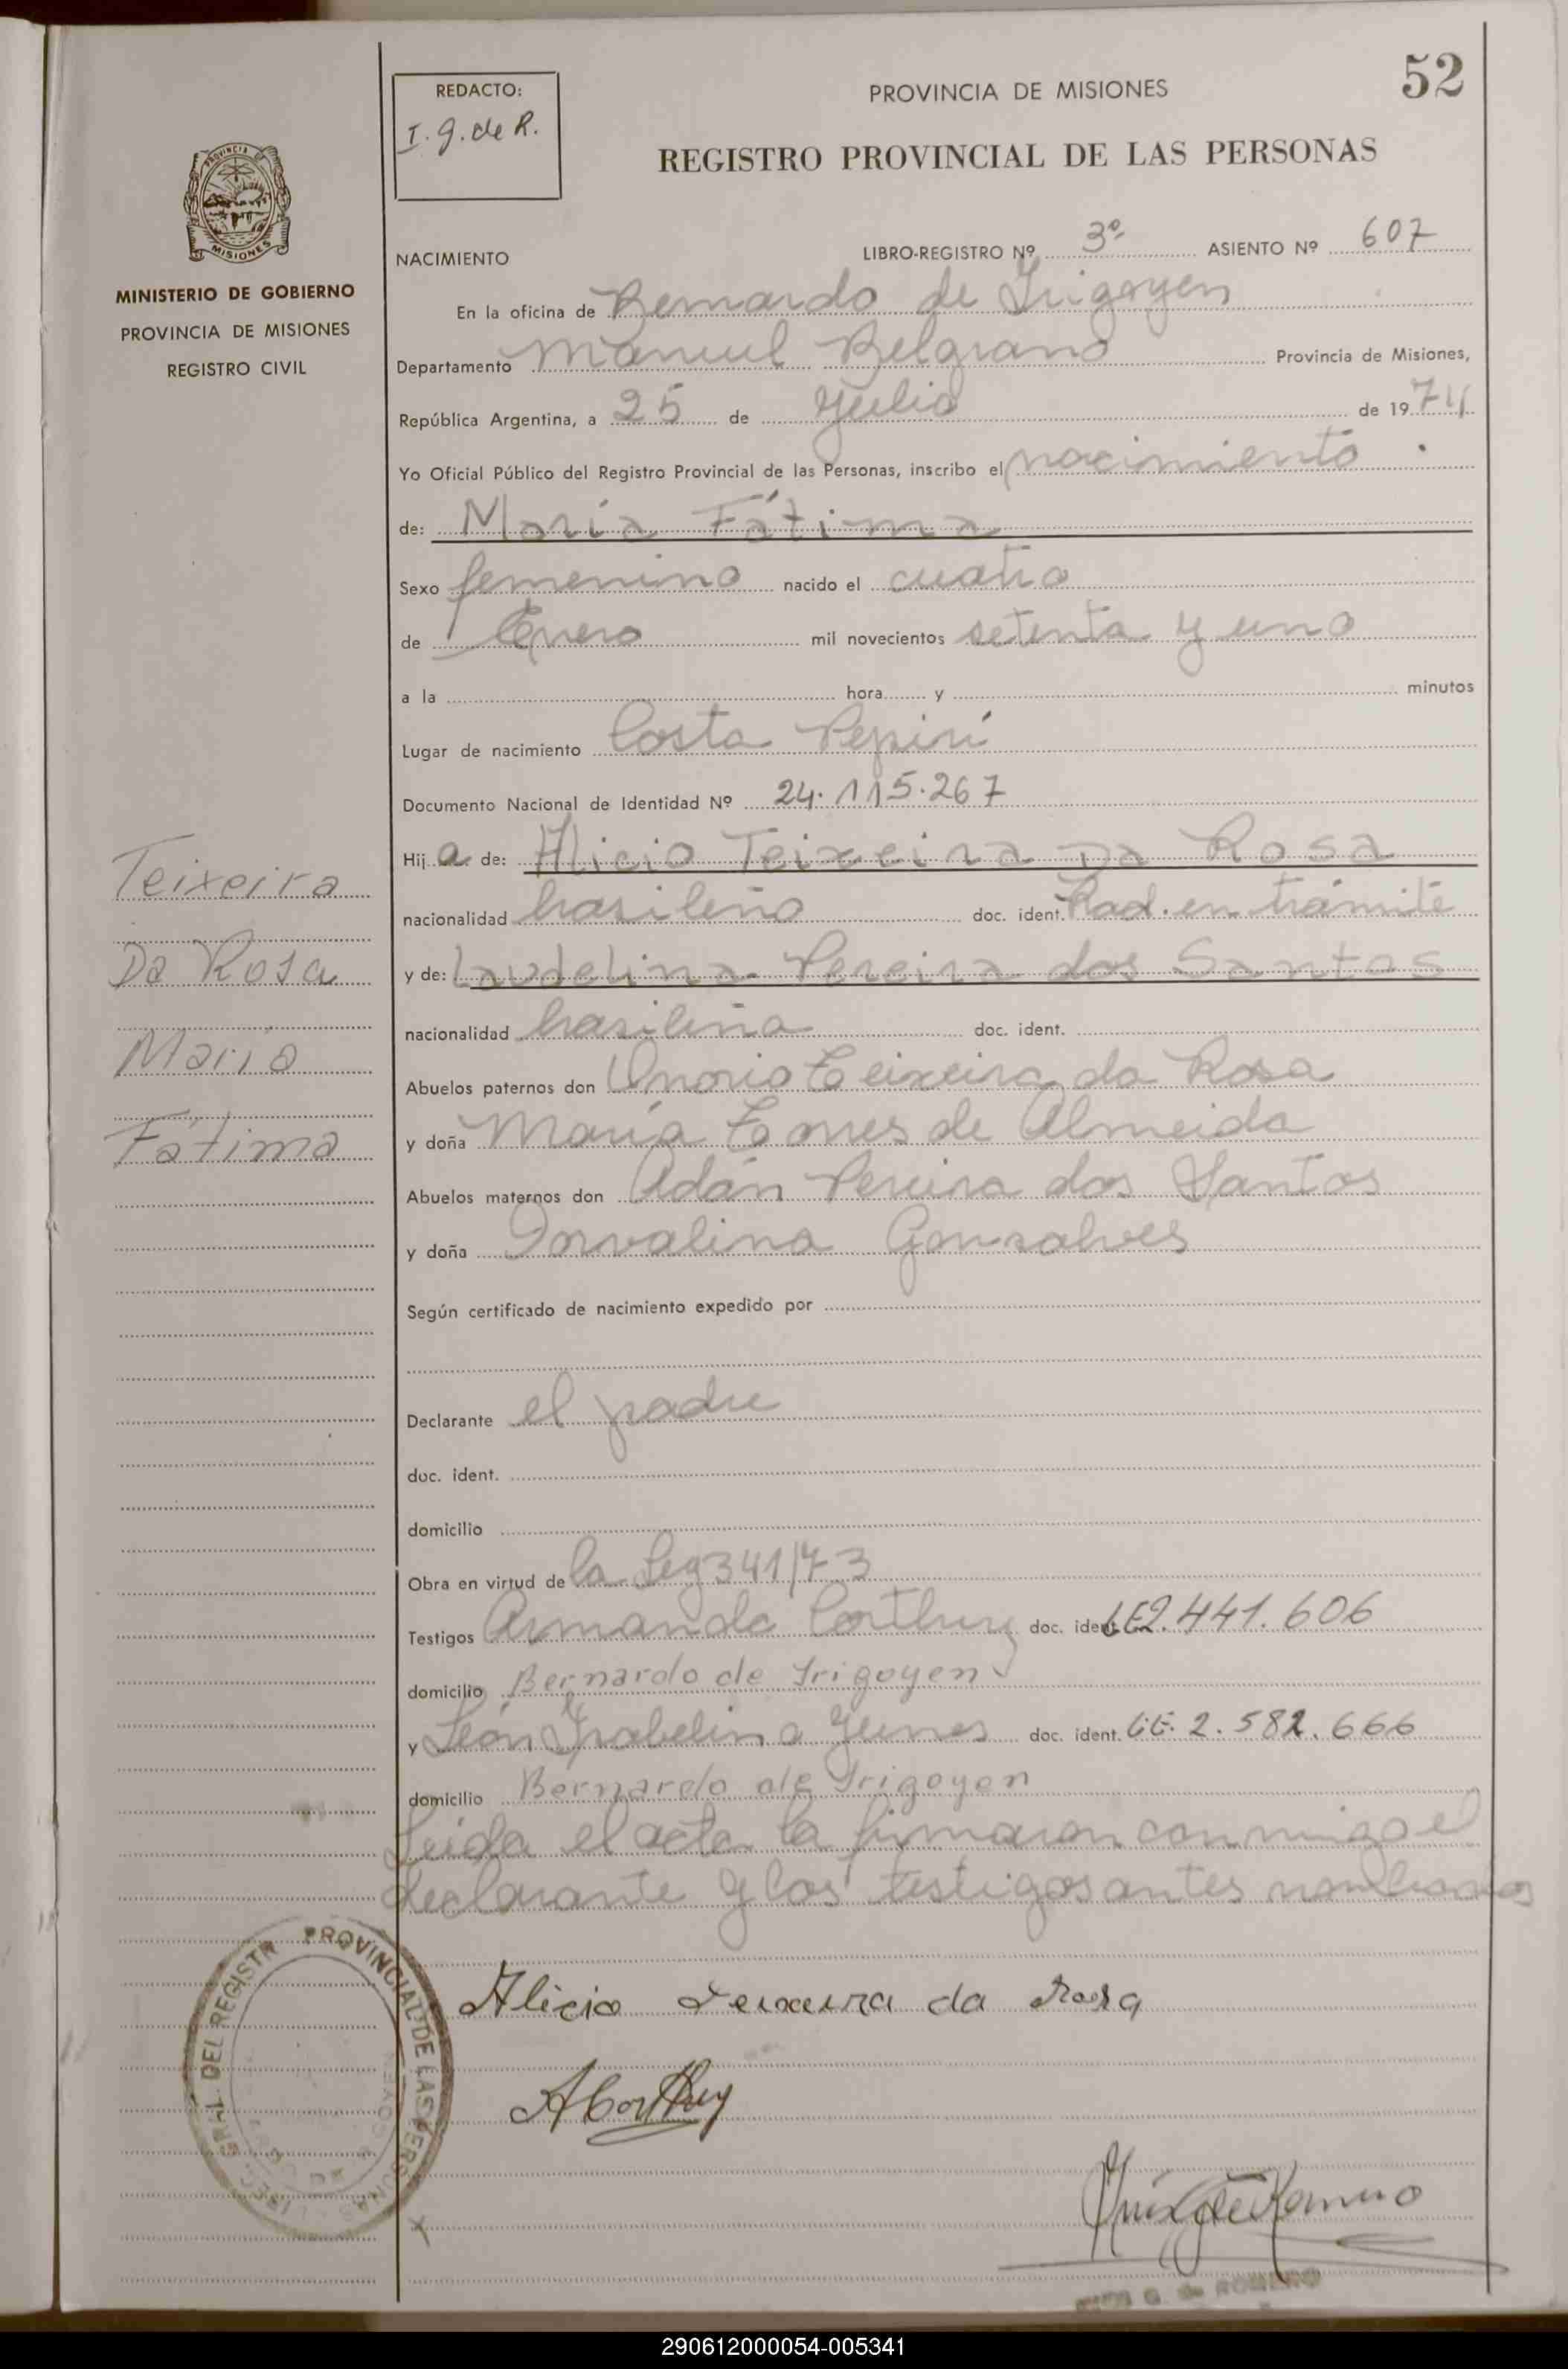 52
REDACTO:
I. g. de R.
PROVINCIA DE MISIONES
REGISTRO PROVINCIAL DE LAS PERSONAS
PROVINCIA DE
MISIONES
MINISTERIO DE GOBIERNO
PROVINCIA DE MISIONES
REGISTRO CIVIL
NACIMIENTO LIBRO-REGISTRO Nº 3º ASIENTO Nº 607
En la oficina de Bernardo de Irigoyen
Departamento Manuel Belgrano Provincia de Misiones,
República Argentina, a 25 de Julio de 1974
Yo Oficial Público del Registro Provincial de las Personas, inscribo el nacimiento
de: María Fátima
Sexo femenino nacido el cuatro
de Enero mil novecientos setenta y uno
a la hora y minutos
Lugar de nacimiento Costa Pepirí
Documento Nacional de Identidad Nº 24.115.267
Hija de: Alicio Teixeira Da Rosa
nacionalidad brasileño doc. ident. Rad. en trámite
y de: Laudelina Pereira dos Santos
nacionalidad brasileña doc. ident.
Abuelos paternos don Onorio Teixeira da Rosa
y doña María de Almeida
Abuelos maternos don Adán Pereira dos Santos
y doña Dorvalina Gonsalves
Según certificado de nacimiento expedido por
Declarante el padre
doc. ident.
domicilio
Obra en virtud de la Ley 341/73
Testigos Armando Corthey doc. ident. LE 2.441.606
domicilio Bernardo de Irigoyen
y León Isabelino Yunes doc. ident. CE. 2.582.666
domicilio Bernardo de Irigoyen
Leida el acta la firmaron conmigo el
declarante y los testigos antes nombrados
Teixeira
Da Rosa
María
Fátima
Alicio Teixeira da Rosa
ACorthey
G. de ROMERO
GRAL. DEL REGISTR PROVINCIAL DE LAS PERSONAS
290612000054-005341